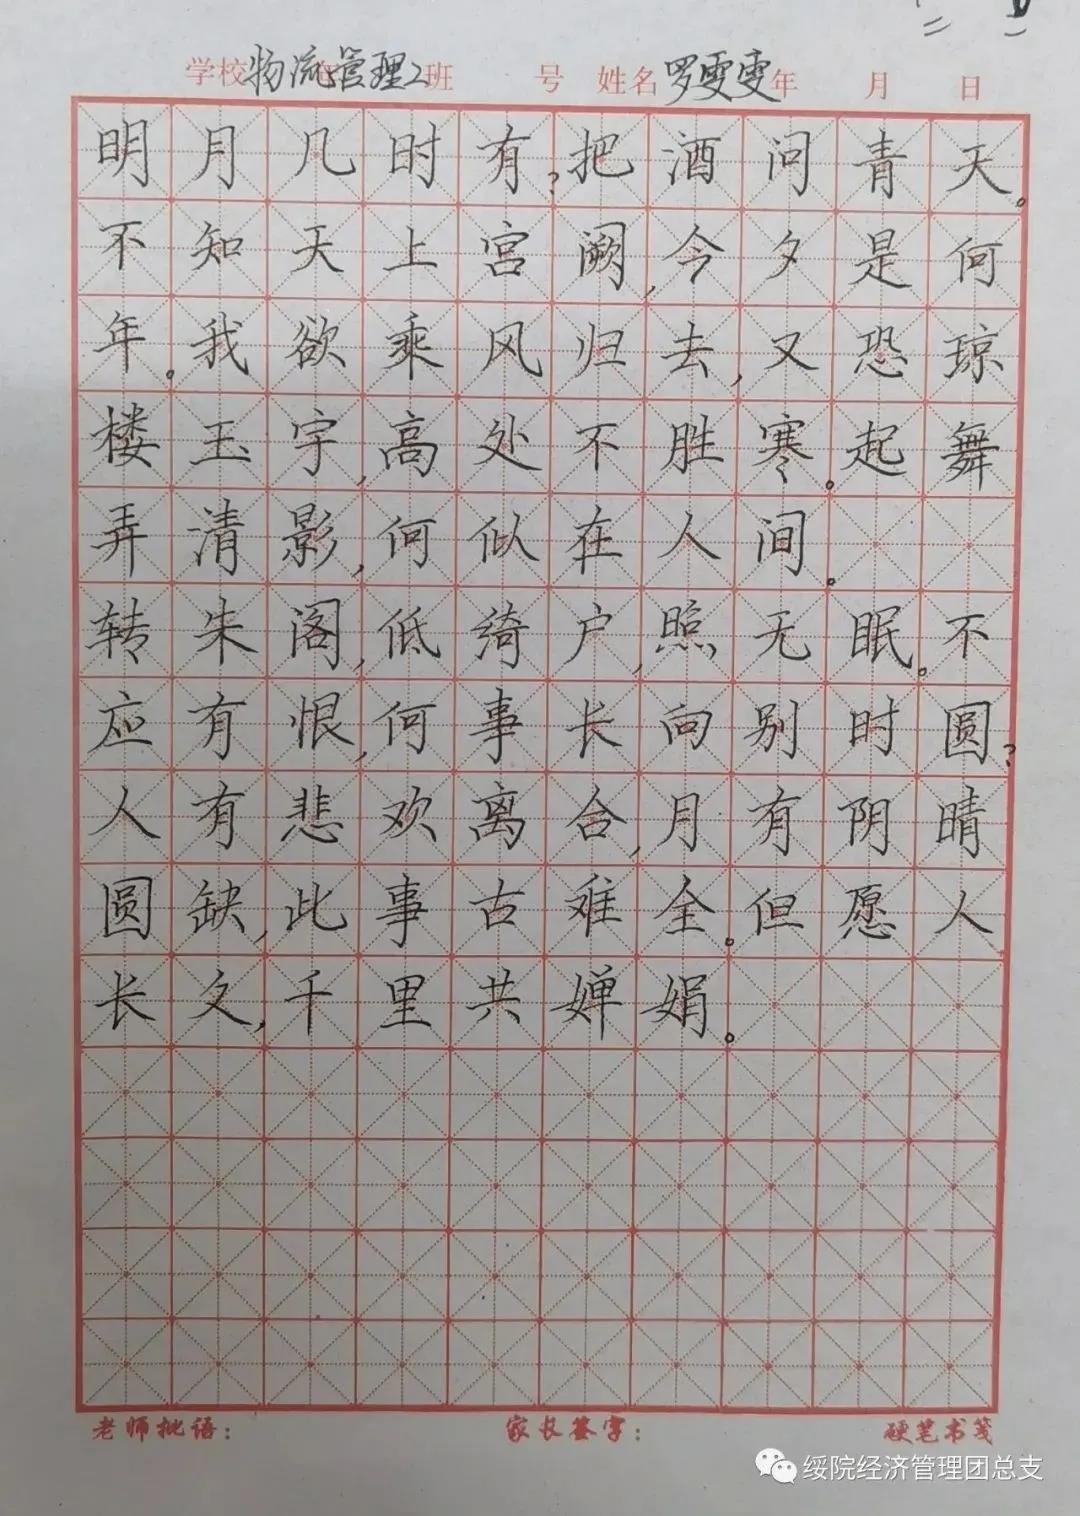 学校物流管理2班 号 姓名罗雯雯年 月 日
明月几时有?把酒问青天。
不知天上宫阙,今夕是何
年。我欲乘风归去,又恐琼
楼玉宇,高处不胜寒。起舞
弄清影,何似在人间。
转朱阁,低绮户,照无眠。不
应有恨,何事长向别时圆?
人有悲欢离合,月有阴晴
圆缺,此事古难全。但愿人
长久,千里共婵娟。
老师批语: 家长签字: 硬笔书笺
绥院经济管理团总支